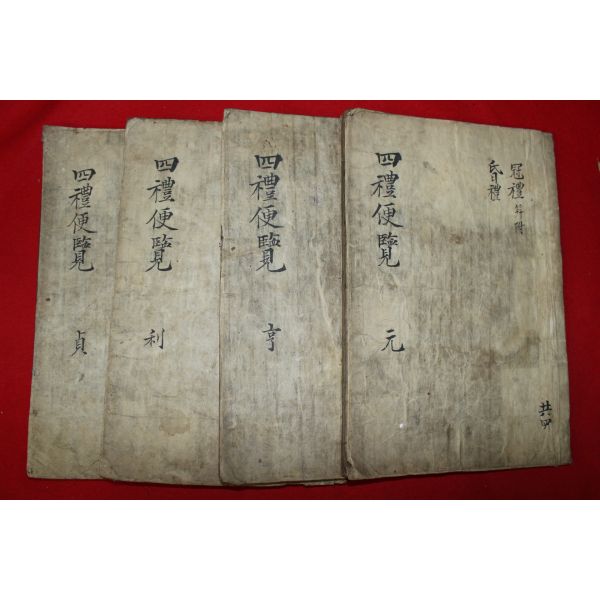 冠禮 笄附
昏禮
四禮便覽 元
共四
四禮便覽 亨
四禮便覽 利
四禮便覽 貞